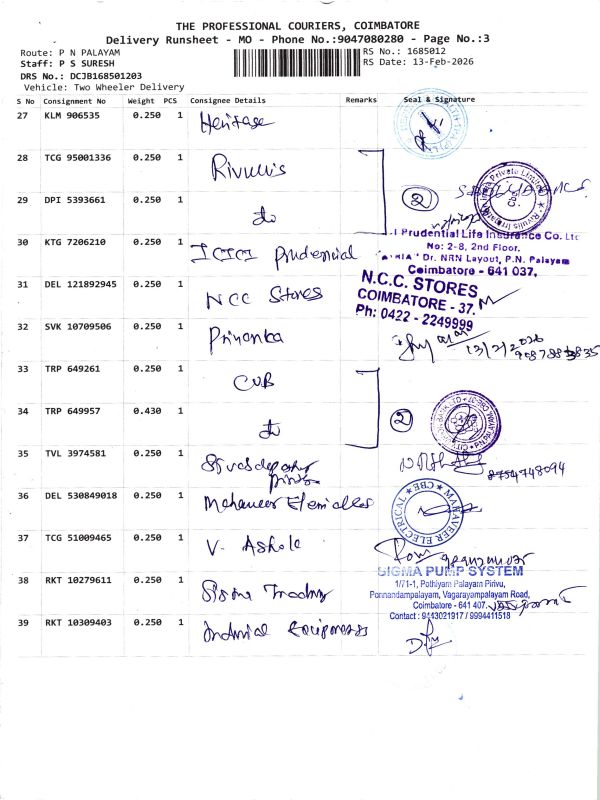 THE PROFESSIONAL COURIERS, COIMBATORE
Delivery Runsheet - MO - Phone No.:9047080280 - Page No.:3
Route: P N PALAYAM
RS No.: 1685012
Staff: P S SURESH
RS Date: 13-Feb-2026
DRS No.: DCJB168501203
Vehicle: Two Wheeler Delivery
S No Consignment No Weight PCS Consignee Details Remarks Seal & Signature
27 KLM 906535 0.250 1 Heritage
28 TCG 95001336 0.250 1 Rivulis
29 DPI 5393661 0.250 1
2
30 KTG 7206210 0.250 1 ICICI Prudencial
l Prudential Life Insurance Co. Ltd
No: 2-8, 2nd Floor,
Dr. NRN Layout, P.N. Palayam
Coimbatore - 641 037.
31 DEL 121892945 0.250 1 NCC Stores
N.C.C. STORES
COIMBATORE - 37.
Ph: 0422 - 2249999
32 SVK 10709506 0.250 1 Priyanka
13/2/2026
33 TRP 649261 0.250 1 CUB
34 TRP 649957 0.430 1
2
35 TVL 3974581 0.250 1
8754748094
36 DEL 530849018 0.250 1 Mahaveer
MAHAVEER ELECTRICAL CBE
37 TCG 51009465 0.250 1 V. Ashok
38 RKT 10279611 0.250 1 Trading
SIGMA PUMP SYSTEM
1/71-1, Pothiyam Palayam Pirivu,
Ponnandampalayam, Vagarayampalayam Road,
Coimbatore - 641 407.
Contact : 9443021917 / 9994411518
39 RKT 10309403 0.250 1